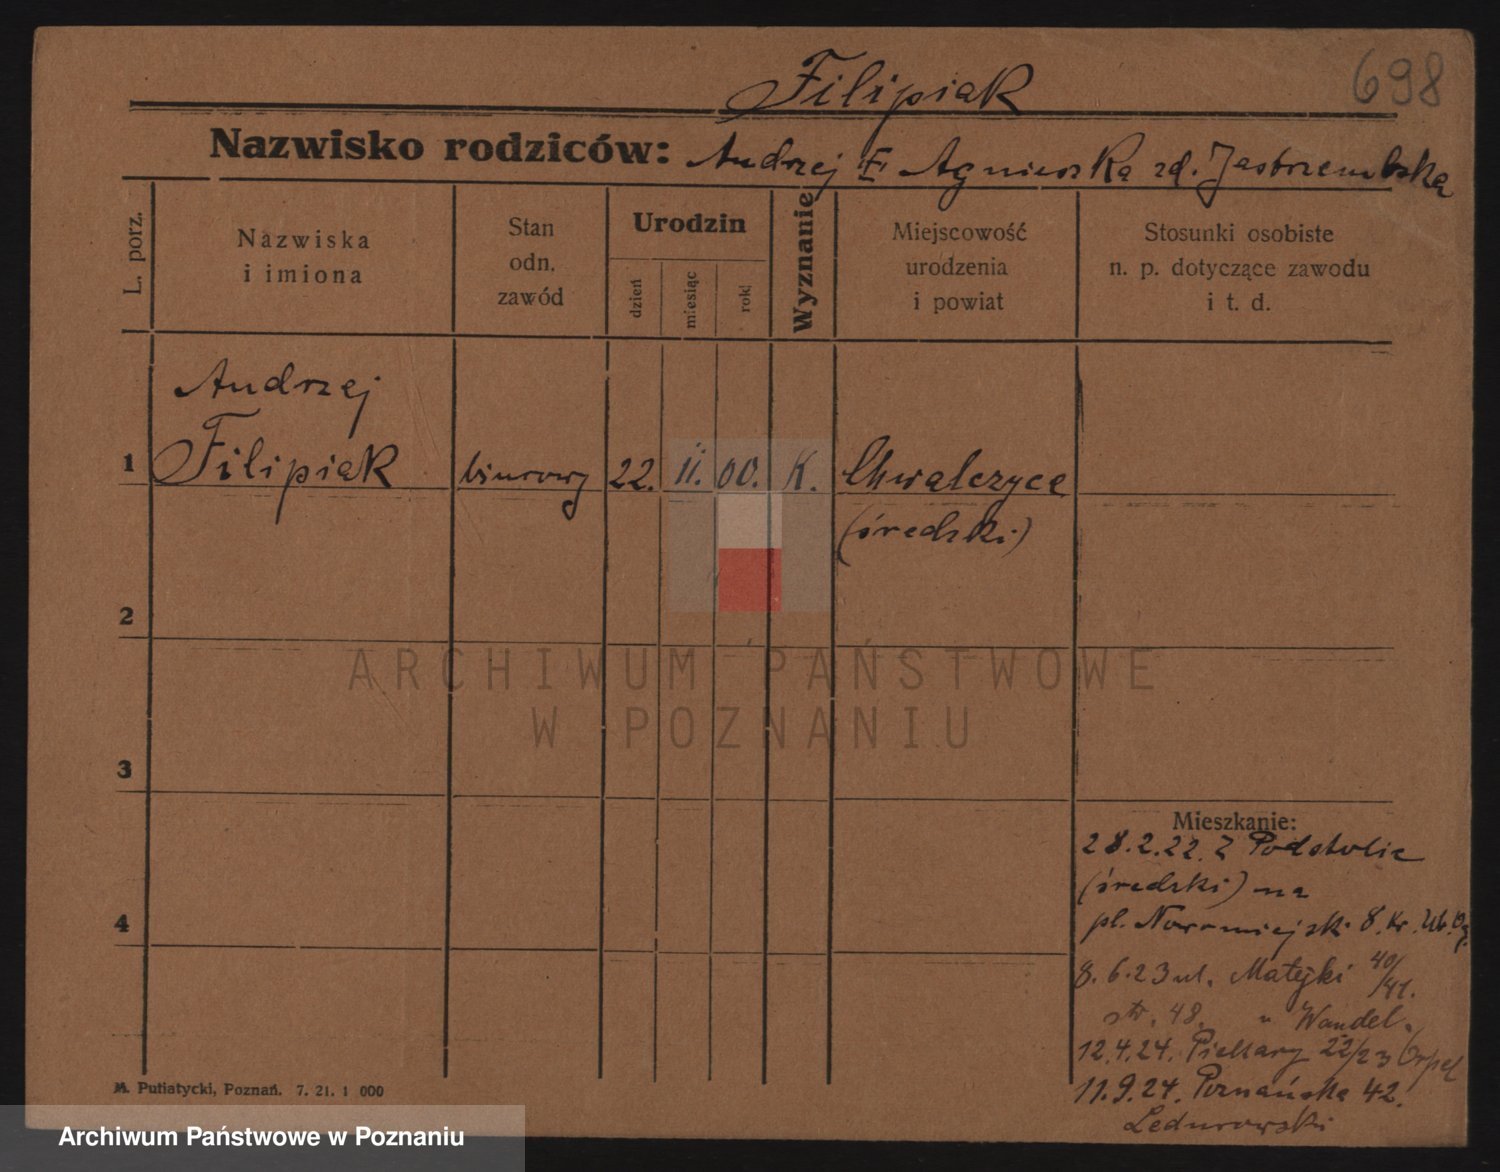 698
Filipiak
Nazwisko rodziców: Andrzej F Agnieszka zd. Jastrzembska
L. porz.
Nazwiska
i imiona
Stan
odn.
zawód
Urodzin
dzień
miesiąc
rok
Wyznanie
Miejscowość
urodzenia
i powiat
Stosunki osobiste
n. p. dotyczące zawodu
i t. d.
Andrzej
1 Filipiak biurowy 22. 11. 00. K. Chwalczyce
(średzki)
2
ARCHIWUM PAŃSTWOWE
W POZNANIU
3
Mieszkanie:
28.2.22. z Podstolic
(średzki) na
4
pl. Nowomiejski 8. Kr. Ub. Og.
8.6.23 ul. Matejki 40/41.
str. 48. " Wandel.
12.4.24. Piekary 22/23
11.9.24. Poznańska 42.
Ledurowski
M. Putiatycki, Poznań. 7. 21. 1 000
Archiwum Państwowe w Poznaniu